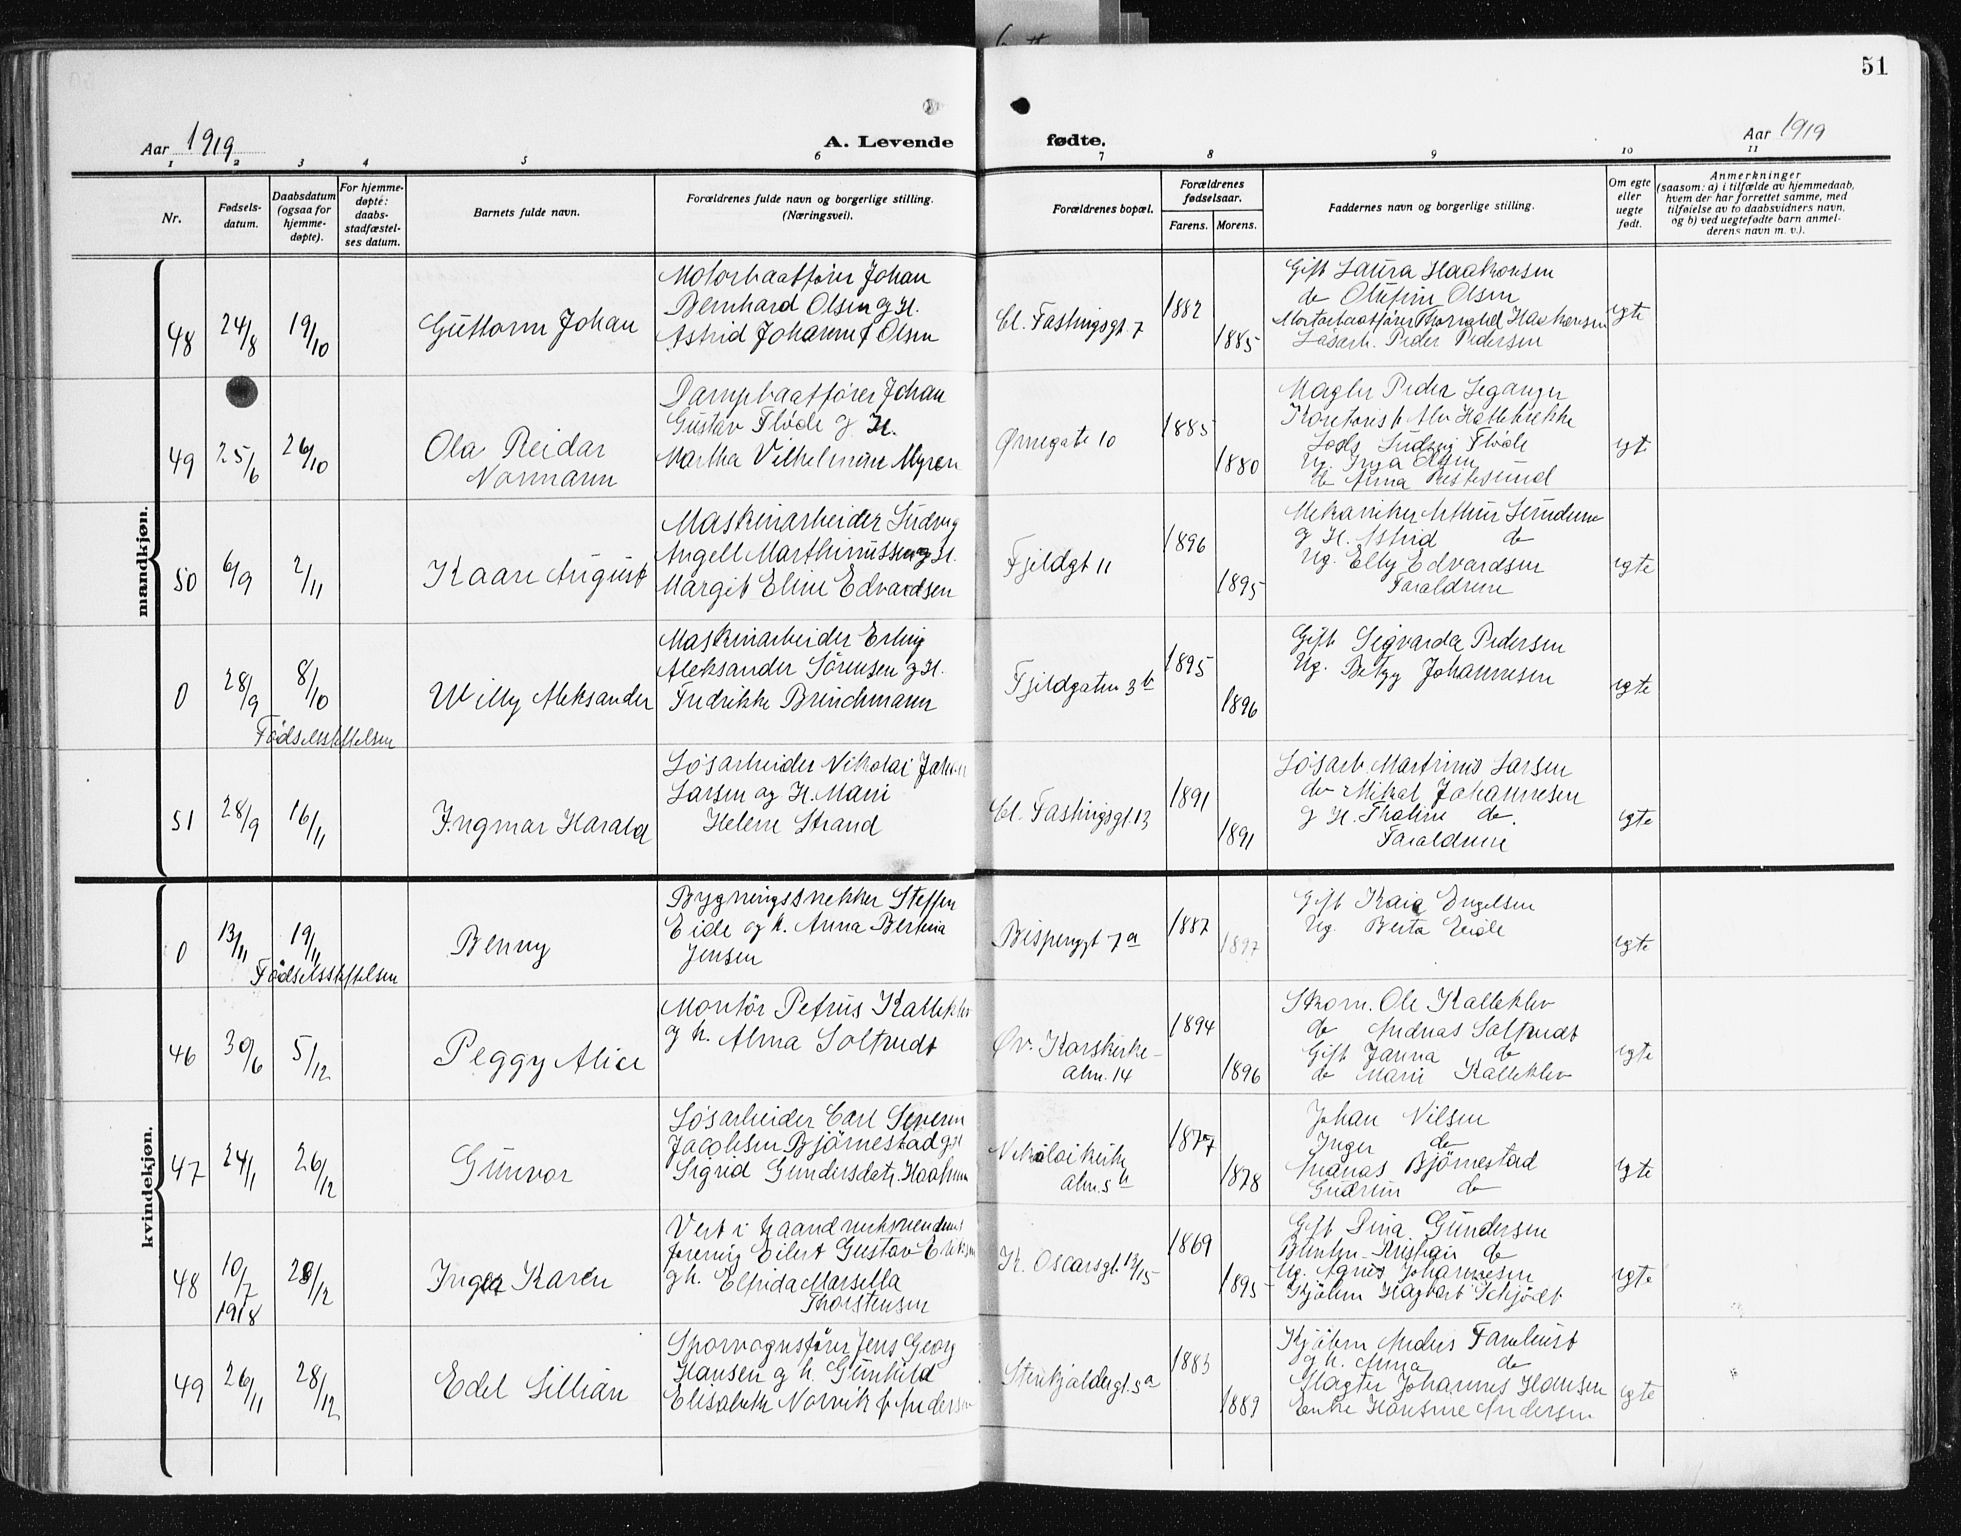 51
Aar 1919
A. Levende
fødte.
Aar 1919
1 2 3 4 5 6 7 8 9 10 11
Nr.
Fødsels-
datum.
Daabsdatum
(ogsaa for
hjemme-
døpte).
For hjemme-
døpte:
daabs-
stadfæstel-
ses datum.
Barnets fulde navn.
Forældrenes fulde navn og borgerlige stilling.
(Næringsvei).
Forældrenes bopæl.
Forældrenes
fødselsaar.
Farens. Morens.
Faddernes navn og borgerlige stilling.
Om egte
eller
uegte
født.
Anmerkninger
(saasom: a) i tilfælde av hjemmedaab,
hvem der har forrettet samme, med
tilføielse av to daabsvidners navn,
og b) ved uegtefødte barn anmel-
derens navn m. v.).
mandkjøn.
48
24/8
19/10
Guttorm Johan
Motorbaatfører Johan
Bernhard Olsen og H.
Astrid Johanne f Olsen
Cl. Fastingsgt. 7
1882
1885
Gift Laura Haakonsen
do Olufine Olsen
Motorbaatfører Thorvald Haakonsen
Løsarb. Peder Pedersen
egte
49
25/6
26/10
Ola Reidar
Normann
Dampbaatfører Johan
Gustav Fløde og H.
Martha Vilhelmine Myren
Ørnegate 10
1885
1880
Megler Peder Leganger
Kontorist Alv Hallebrekke
Lods Ludvig Fløde
Ug. Inga Olsen
do Anna
egt
50
6/9
2/11
Kaare August
Maskinarbeider Ludvig
Angell Marthinussen og H.
Margit Eline Edvardsen
Fjeldgt 11
1896
1895
Mekaniker Arthur
og H. Astrid do
Ug. Elly Edvardsen
Forældrene
egte
0
28/9
8/10
Fødselsstiftelsen
Willy Aleksander
Maskinarbeider Erling
Aleksander Sørensen og H.
Fredrikke Brinchmann
Fjeldgaten 3b
1895
1896
Gift Sigvarda Pedersen
Ug. Betzy Johannesen
egte
51
28/9
16/11
Ingmar Harald
Løsarbeider Nikolai Johan
Larsen og H. Marie
Helene Strand
Cl. Fastingsgt. 13
1891
1891
Løsarb. Martinus Larsen
do Mikal Johannesen
og H. Thaline do.
Forældrene
egte
kvindekjøn.
0
13/11
19/11
Fødselsstiftelsen
Benny
Bygningssnekker Steffen
Eide og h. Anna Bertina
Jensen
Bispengt 7a
1887
1897
Gift Kaia Engelsen
Ug. Berta Eide
egte
46
30/6
5/12
Peggy Alice
Montør Petrus Kalleklev
og h. Alma Soltvedt
Øv. Korskirke-
alm. 14
1894
1896
Skom. Ole Kalleklev
do Andreas Soltvedt
Gift Janna do
do Marie Kalleklev
egte
47
24/1
26/12
Gunvor
Løsarbeider Carl Severin
Jacobsen Bjørnestad og H
Sigrid Gundersdatr.
Nikolaikirke
alm. 5b
1877
1878
Johan Nilsen
Inger do
Andreas Bjørnestad
Gudrun do
egte
48
10/7
1918
28/12
Inger Karen
Vert i haandverksvendenes
forening Eilert Gustav Eriksen
og h. Elfrida Marsella
Thorstensen
K. Oscarsgt. 13/15
1869
1895
Gift Dina Gundersen
Kristian do
Ug. Agnes Johannesen
Kjøbm Hagbart Schjødt
egte
49
26/11
28/12
Edel Lillian
Sporvognsfører Jens Georg
Hansen og h. Gunhild
Elisabeth Norvik f Andersen
Stenkjeldergt. 5a
1883
1889
Kjøbm Anders
og h. Anna do
Slagter Johannes Hansen
Enke Hansine Andersen
egte